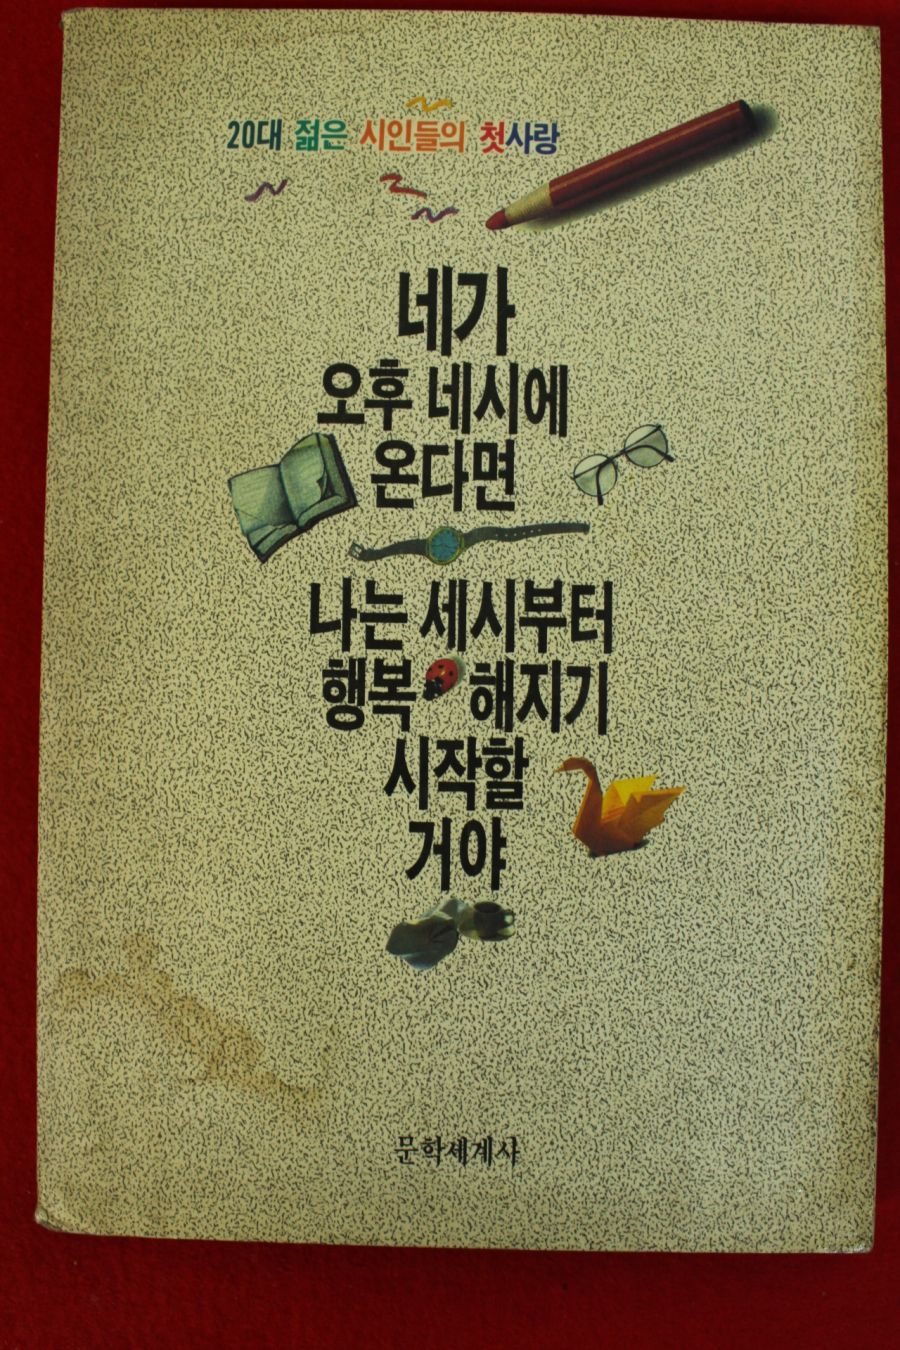 20대 젊은 시인들의 첫사랑
네가
오후 네시에
온다면
나는 세시부터
행복 해지기
시작할
거야
문학세계사